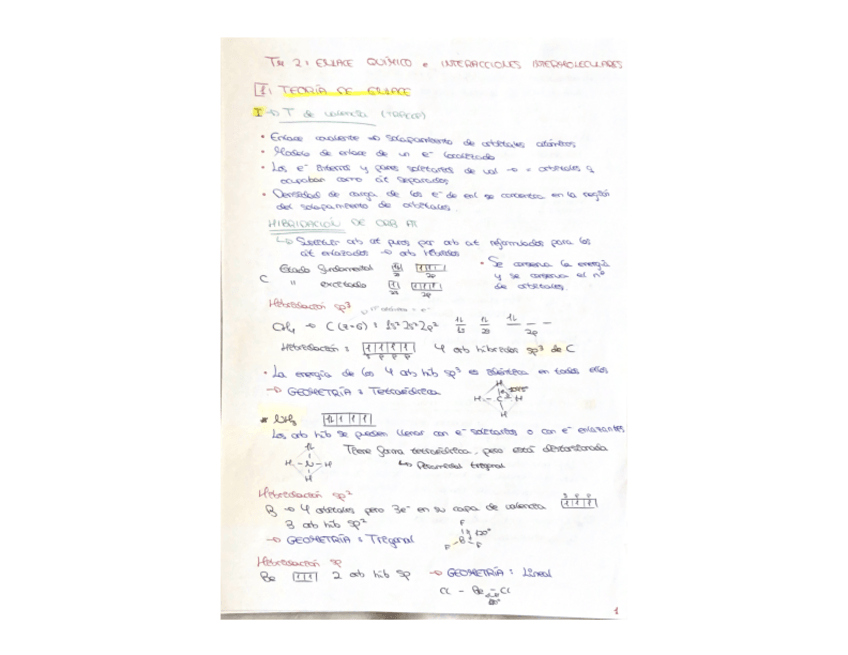 TM 2: ENLACE QUÍMICO e INTERACCIONES INTERMOLECULARES
1. TEORÍA DE ENLACE
I → T de valencia (TRPECV)
• Enlace covalente → solapamiento de orbitales atómicos
• Modelo de enlace de un e⁻ localizado
• Los e⁻ internos y pares solitarios de val → = orbitales q
ocupaban como át separados
• Densidad de carga de los e⁻ de enl se concentra en la región
del solapamiento de orbitales.
HIBRIDACIÓN DE ORB AT
↳ Sustituir orb at puros por orb at reformulados para los
át enlazados → orb híbridos
C Estado fundamental 2s 2p
" excitado 2s 2p
• Se conserva la energía
y se conserva el nº
de orbitales.
Hibridación sp³
CH₄ → C (z=6): 1s² 2s² 2p² 1s 2s 2p
Hibridación: s p p p 4 orb híbridos sp³ de C
• La energía de los 4 orb hib sp³ es idéntica en todos ellos
→ GEOMETRÍA: Tetraédrica
H
H - C - H
H
* NH₃
Los orb hib se pueden llenar con e⁻ solitarios o con e⁻ enlazantes
H - N - H
H
Tiene forma tetraédrica, pero está distorsionada
↳ Piramidal trigonal
Hibridación sp²
B → 4 orbitales pero 3e⁻ en su capa de valencia s p p
3 orb hib sp²
→ GEOMETRÍA: Trigonal
F
120°
F - B - F
Hibridación sp
Be 2 orb hib sp → GEOMETRÍA: Lineal
Cl - Be - Cl
1